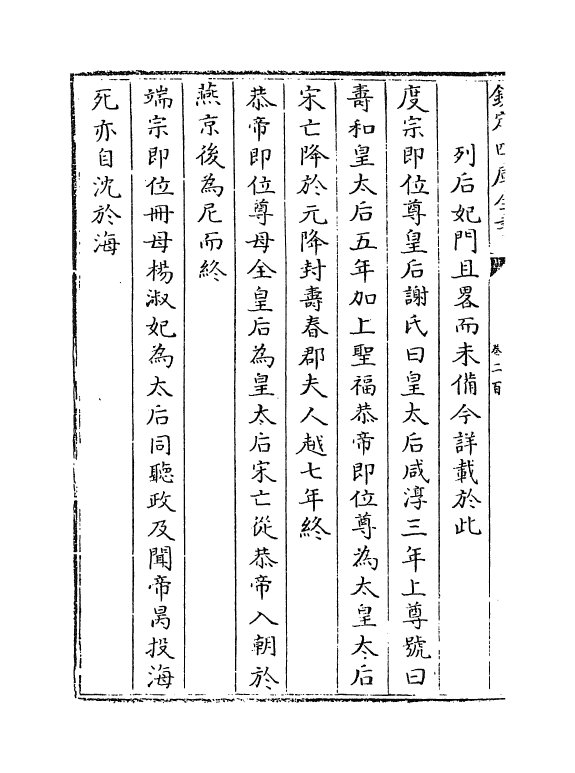 欽定四庫全書
卷二百
列后妃門且畧而未備今詳載於此
度宗即位尊皇后謝氏曰皇太后咸淳三年上尊號曰
壽和皇太后五年加上聖福恭帝即位尊為太皇太后
宋亡降於元降封壽春郡夫人越七年終
恭帝即位尊母全皇后為皇太后宋亡從恭帝入朝於
燕京後為尼而終
端宗即位冊母楊淑妃為太后同聽政及聞帝昺投海
死亦自沈於海